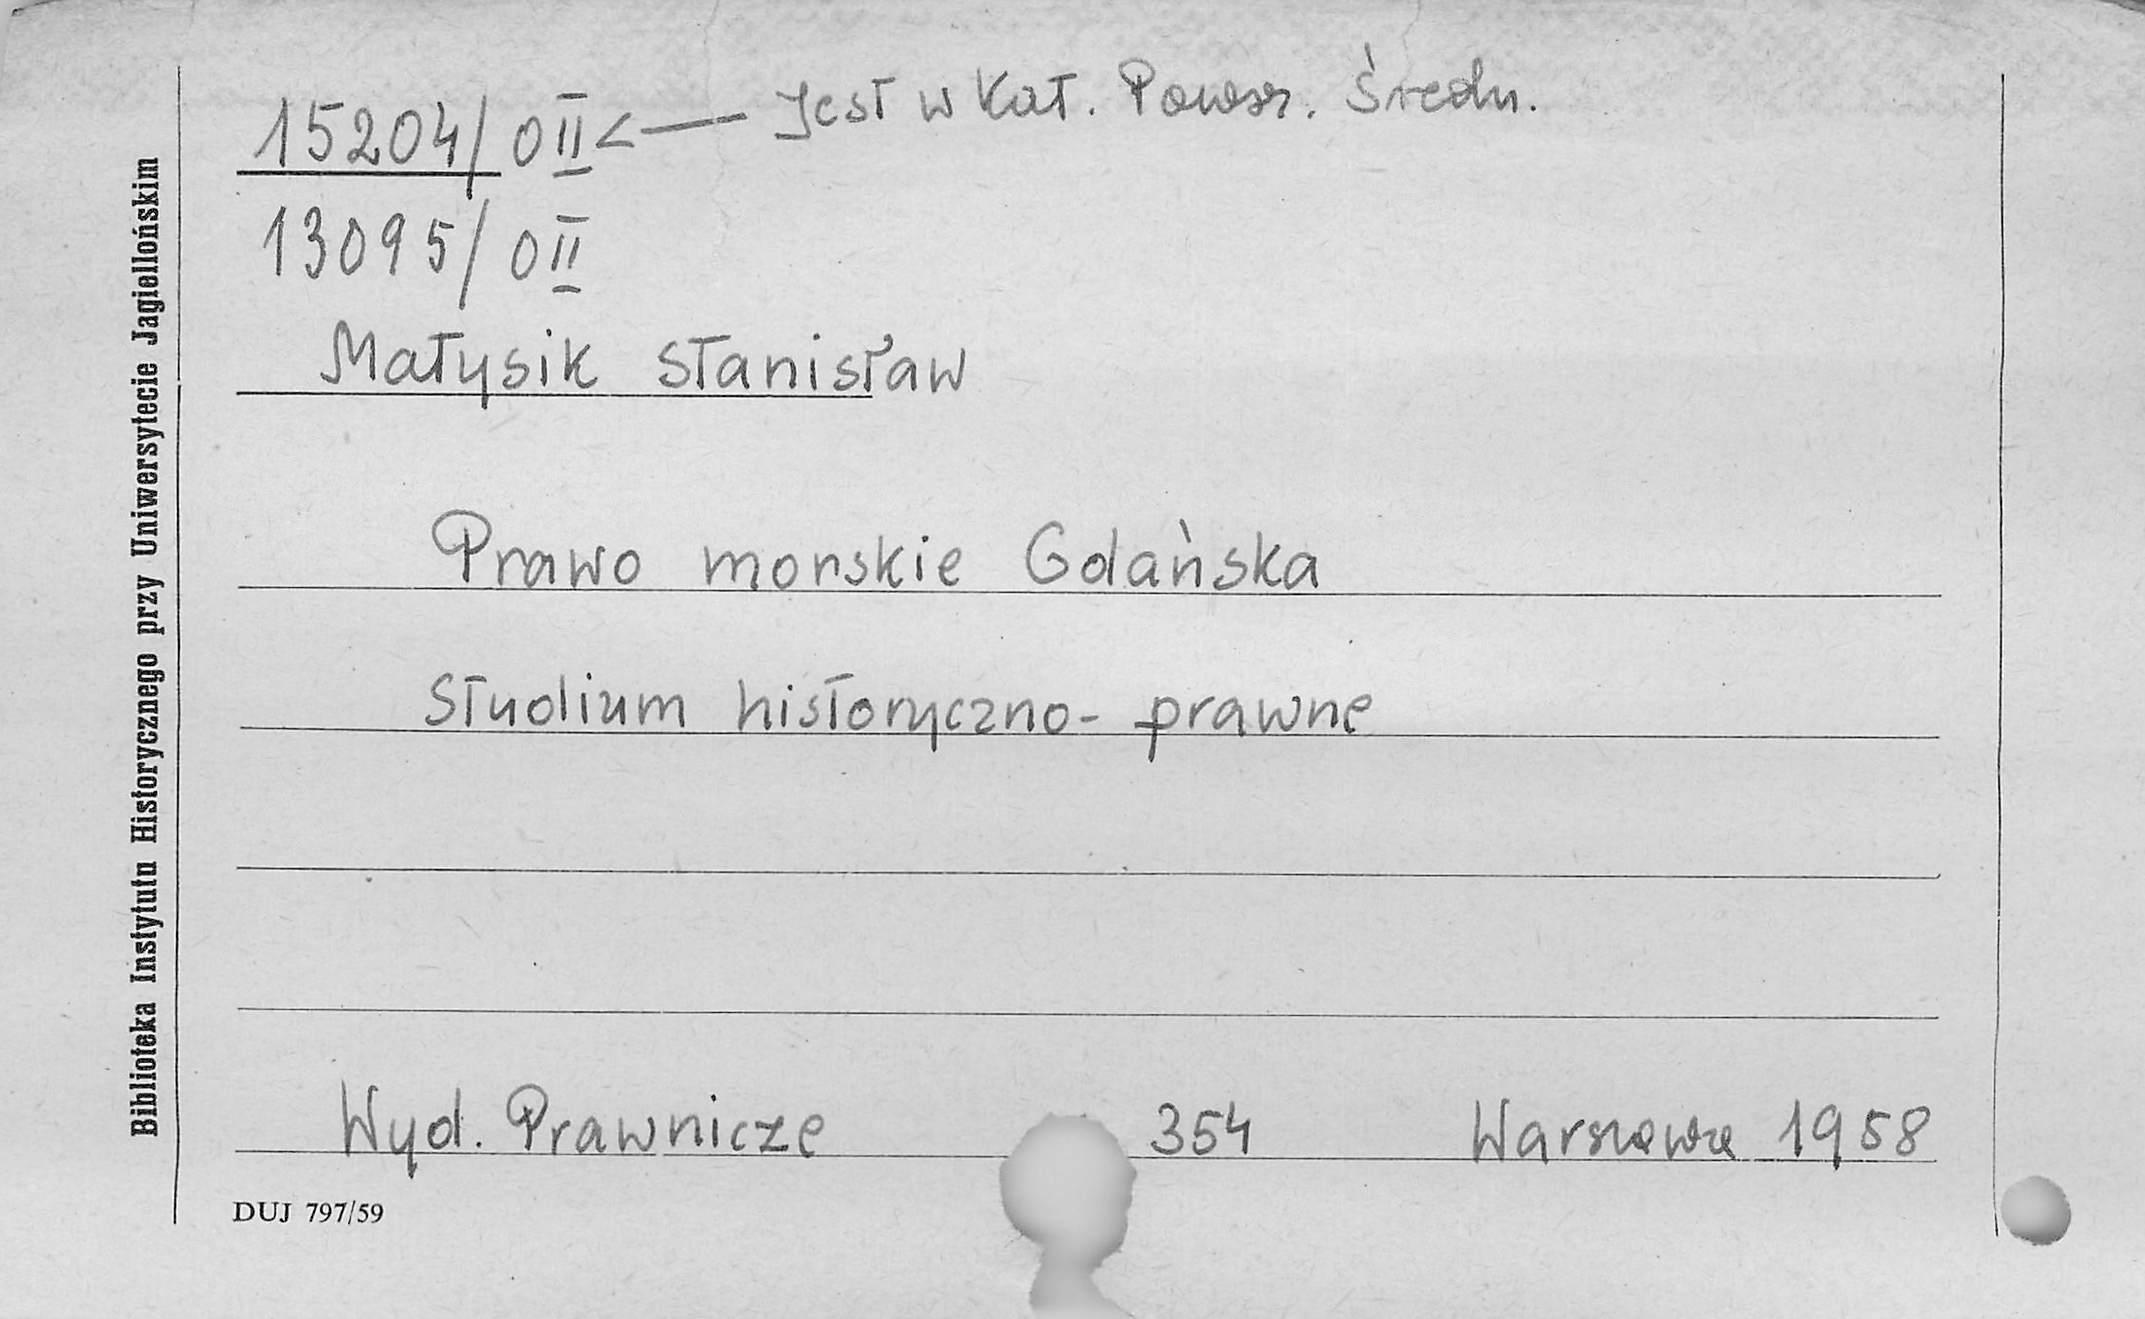 15204/0II <— Jest w Kat. Powsz. Średn.
13095/0II
Matysik Stanisław
Prawo morskie Gdańska
Studium historyczno-prawne
Wyd. Prawnicze 354 Warszawa 1958
DUJ 797/59
Biblioteka Instytutu Historycznego przy Uniwersytecie Jagiellońskim